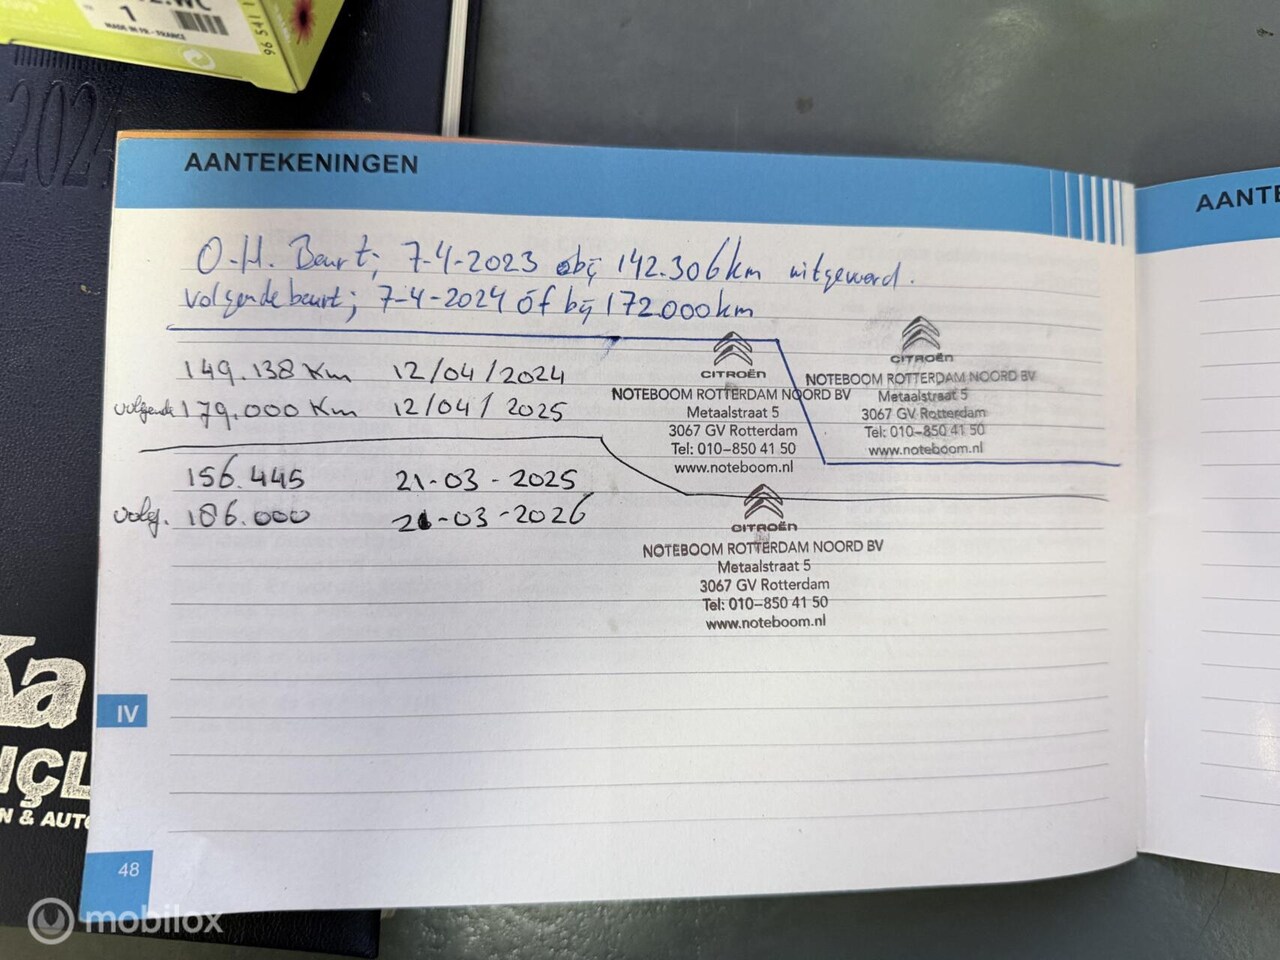 1
MADE IN FR.-FRANCE
96 541 1
2024
AANTEKENINGEN
O.H. Beurt; 7-4-2023 bij 142.306km uitgevoerd.
volgende beurt; 7-4-2024 óf bij 172.000km
149.138 Km 12/04/2024
volgende 179.000 Km 12/04/ 2025
CITROËN
NOTEBOOM ROTTERDAM NOORD BV
Metaalstraat 5
3067 GV Rotterdam
Tel: 010-850 41 50
www.noteboom.nl
CITROËN
NOTEBOOM ROTTERDAM NOORD BV
Metaalstraat 5
3067 GV Rotterdam
Tel: 010-850 41 50
www.noteboom.nl
156.445 21-03-2025
volg. 186.000 21-03-2026
CITROËN
NOTEBOOM ROTTERDAM NOORD BV
Metaalstraat 5
3067 GV Rotterdam
Tel: 010-850 41 50
www.noteboom.nl
IV
48
AANTE
Ka
NÇL
N & AUTO
mobilox